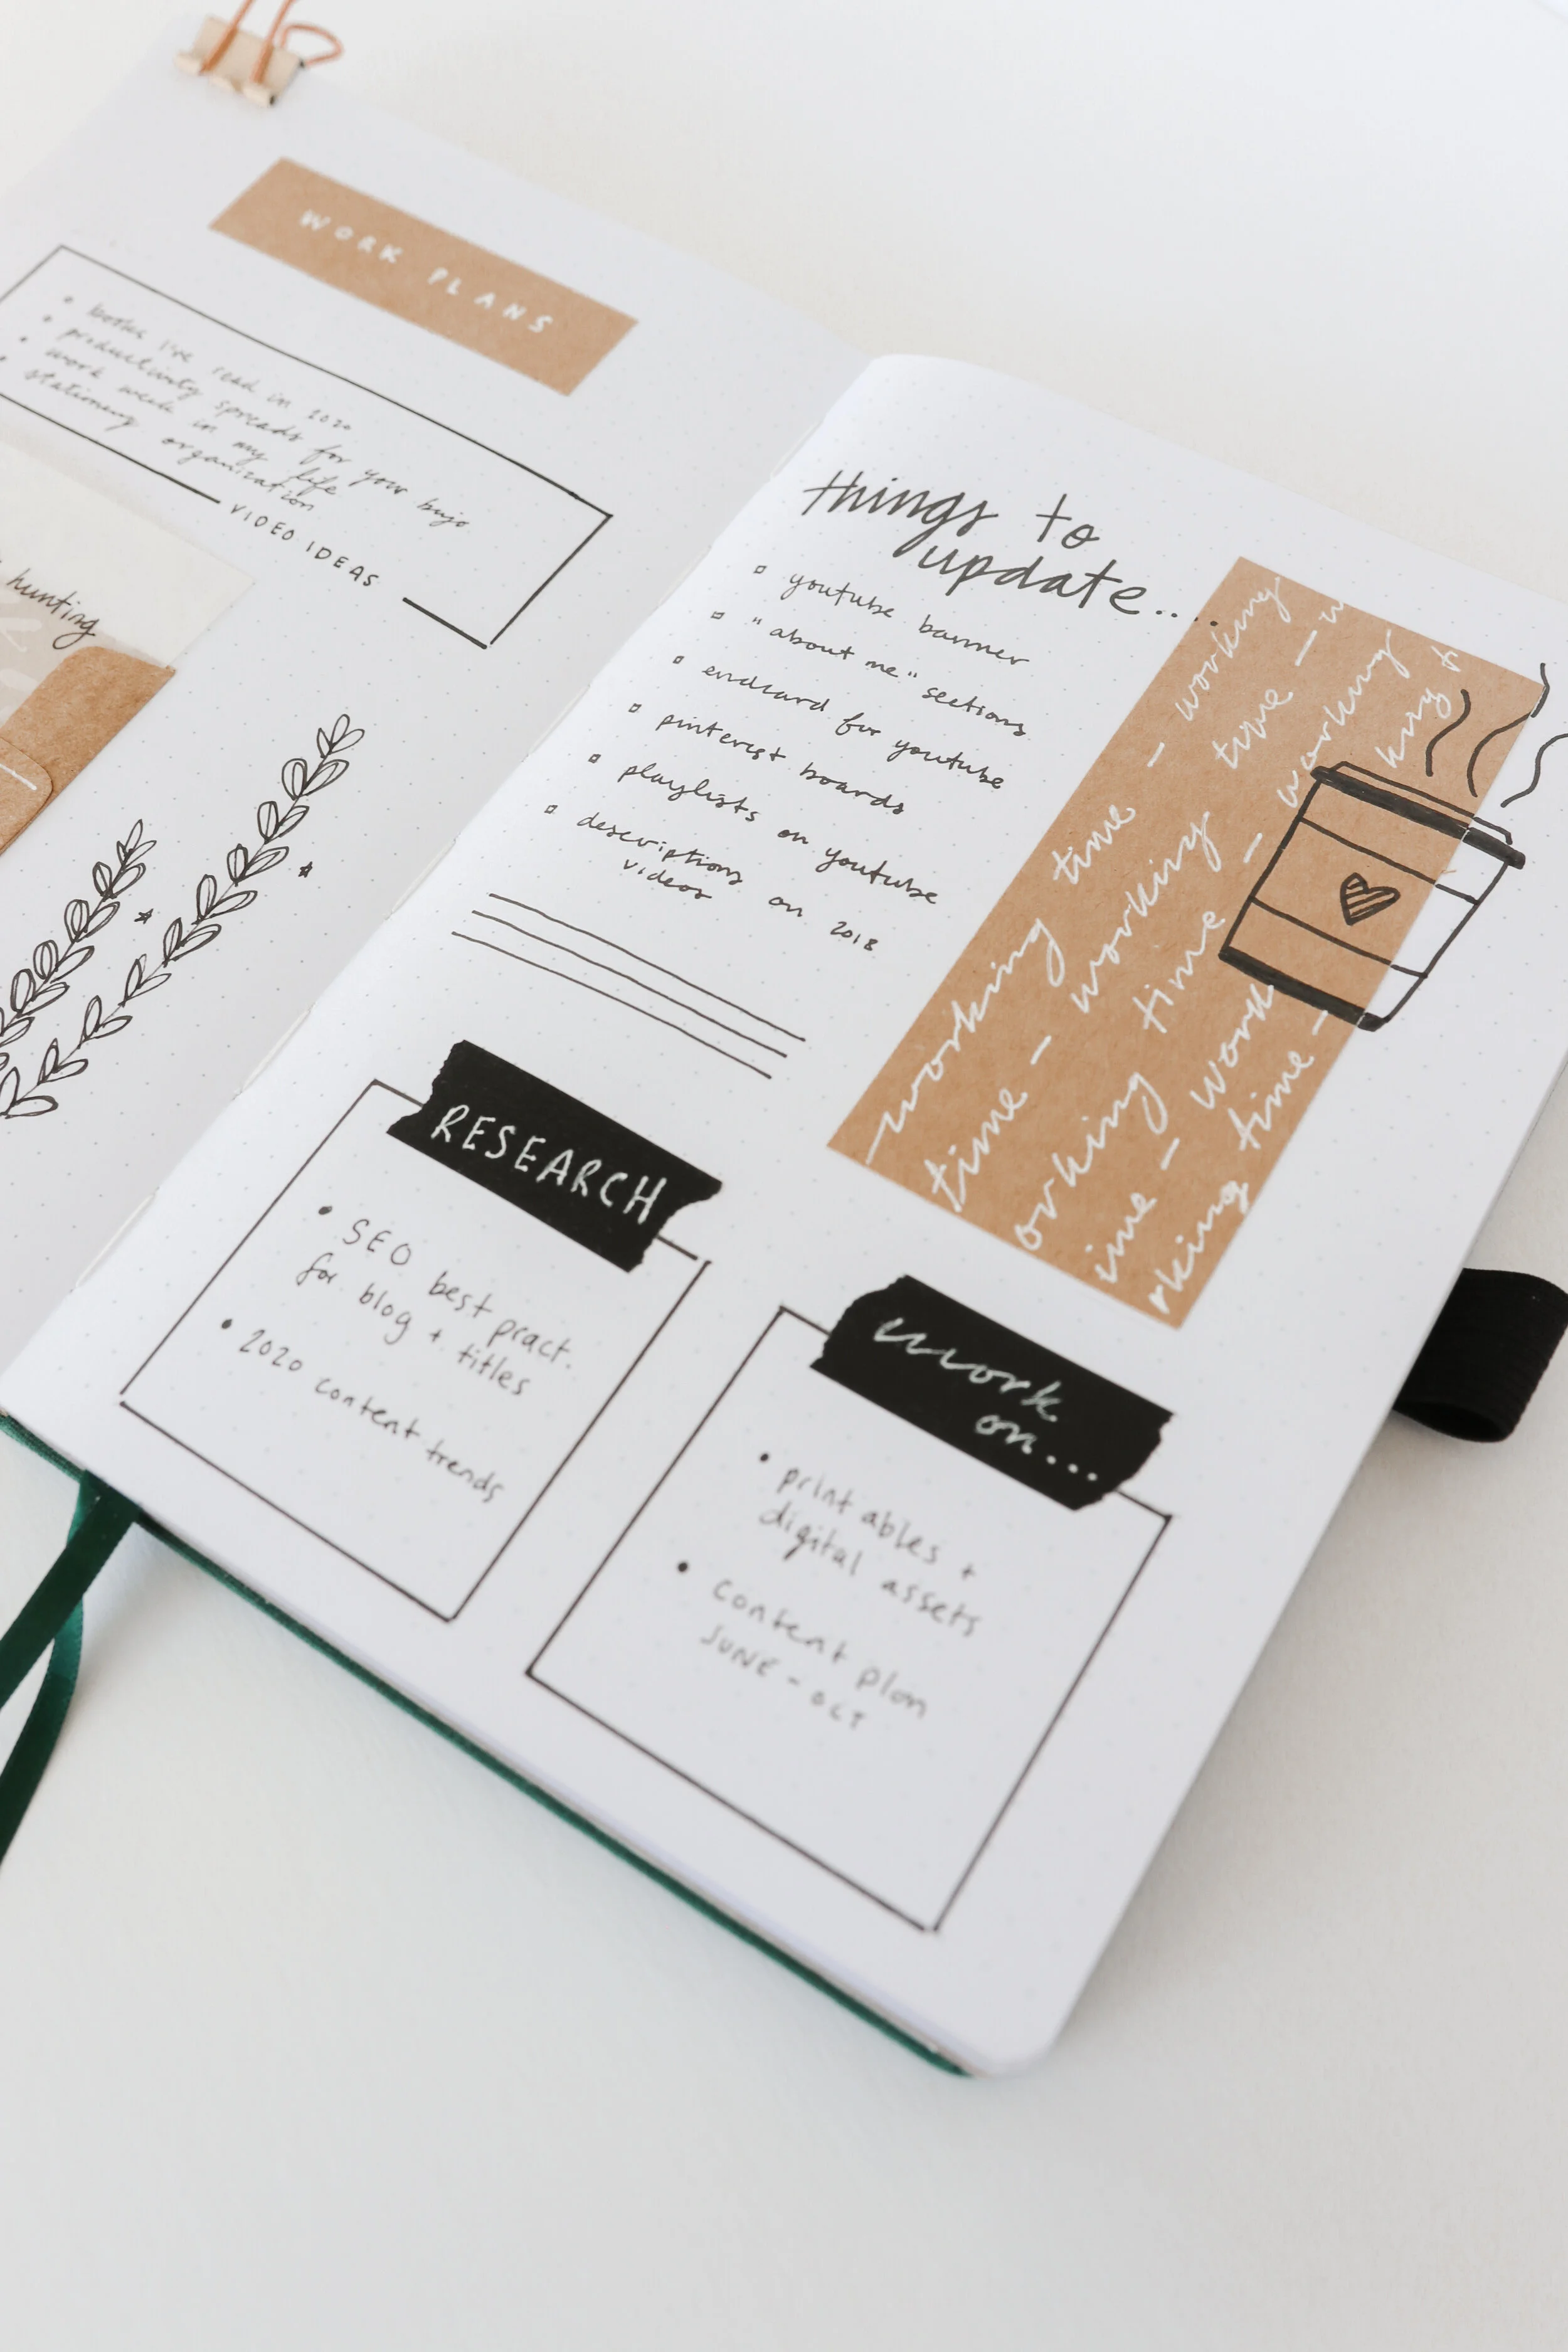 WORK PLANS
• books I've read in 2020
• productivity spreads for your bujo
• work week in my life
• stationery organization
VIDEO IDEAS
hunting
things to
update....
youtube banner
"about me" sections
endcard for youtube
pinterest boards
playlists on youtube
descriptions on 2018
videos
working time - working
time - working time - w
orking time - working t
ime - work king t
rking time -
RESEARCH
• SEO best pract.
for blog + titles
• 2020 content trends
work
on...
• printables +
digital assets
• content plan
JUNE - OCT